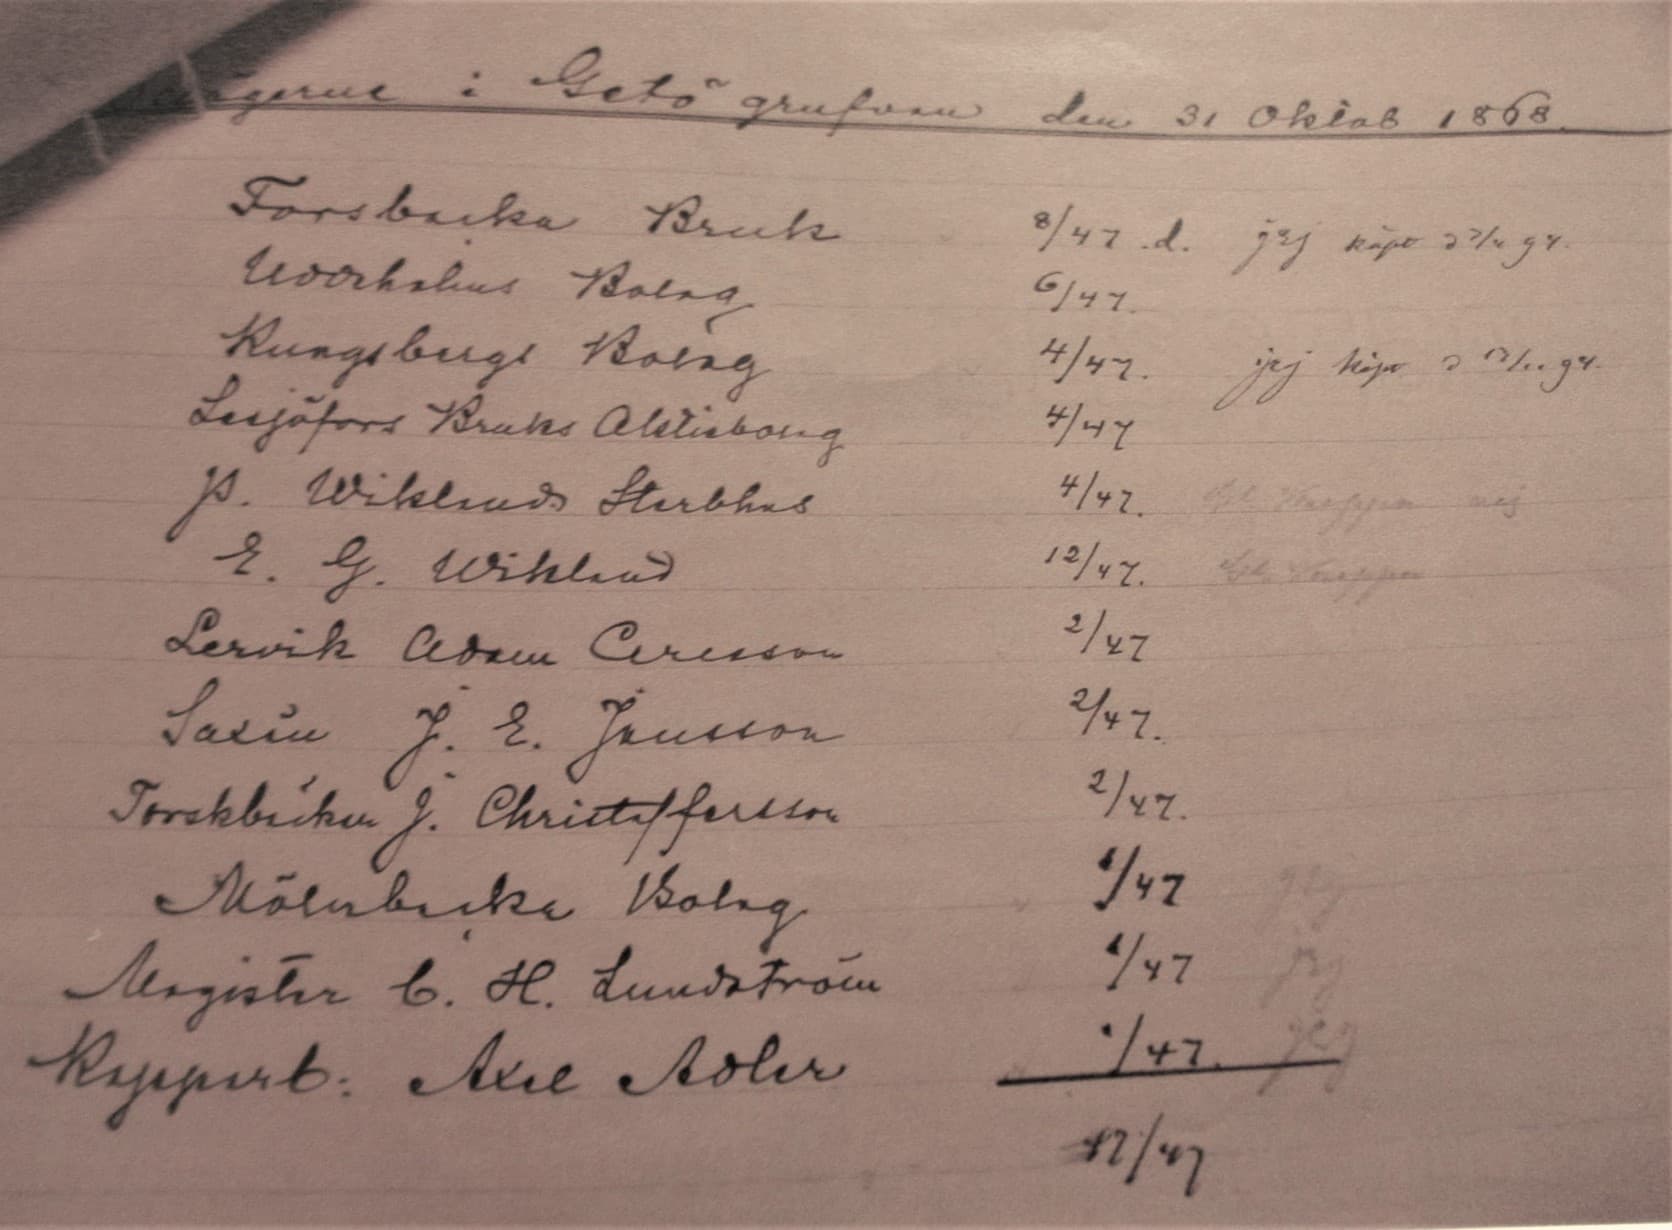 i Getö grufvan den 31 Oktob 1868.
Forsbacka Bruk 8/47 .d. jag köpt
Uddeholms Bolag 6/47.
Kungsbergs Bolag 4/47. jag köpt
Lesjöfors Bruks Aktiebolag 4/47
P. Wiklunds Sterbhus 4/47. nej
E. G. Wiklund 12/47.
Lervik Adam Ericsson 2/47
Saxån J. E. Jansson 2/47.
Torskbäcken J. Christoffersson 2/47.
Mölnbacka Bolag 1/47 jag
Magister C. H. Lundström 1/47 jag
Kappar b: Axel Adler 1/47. jag
47/47